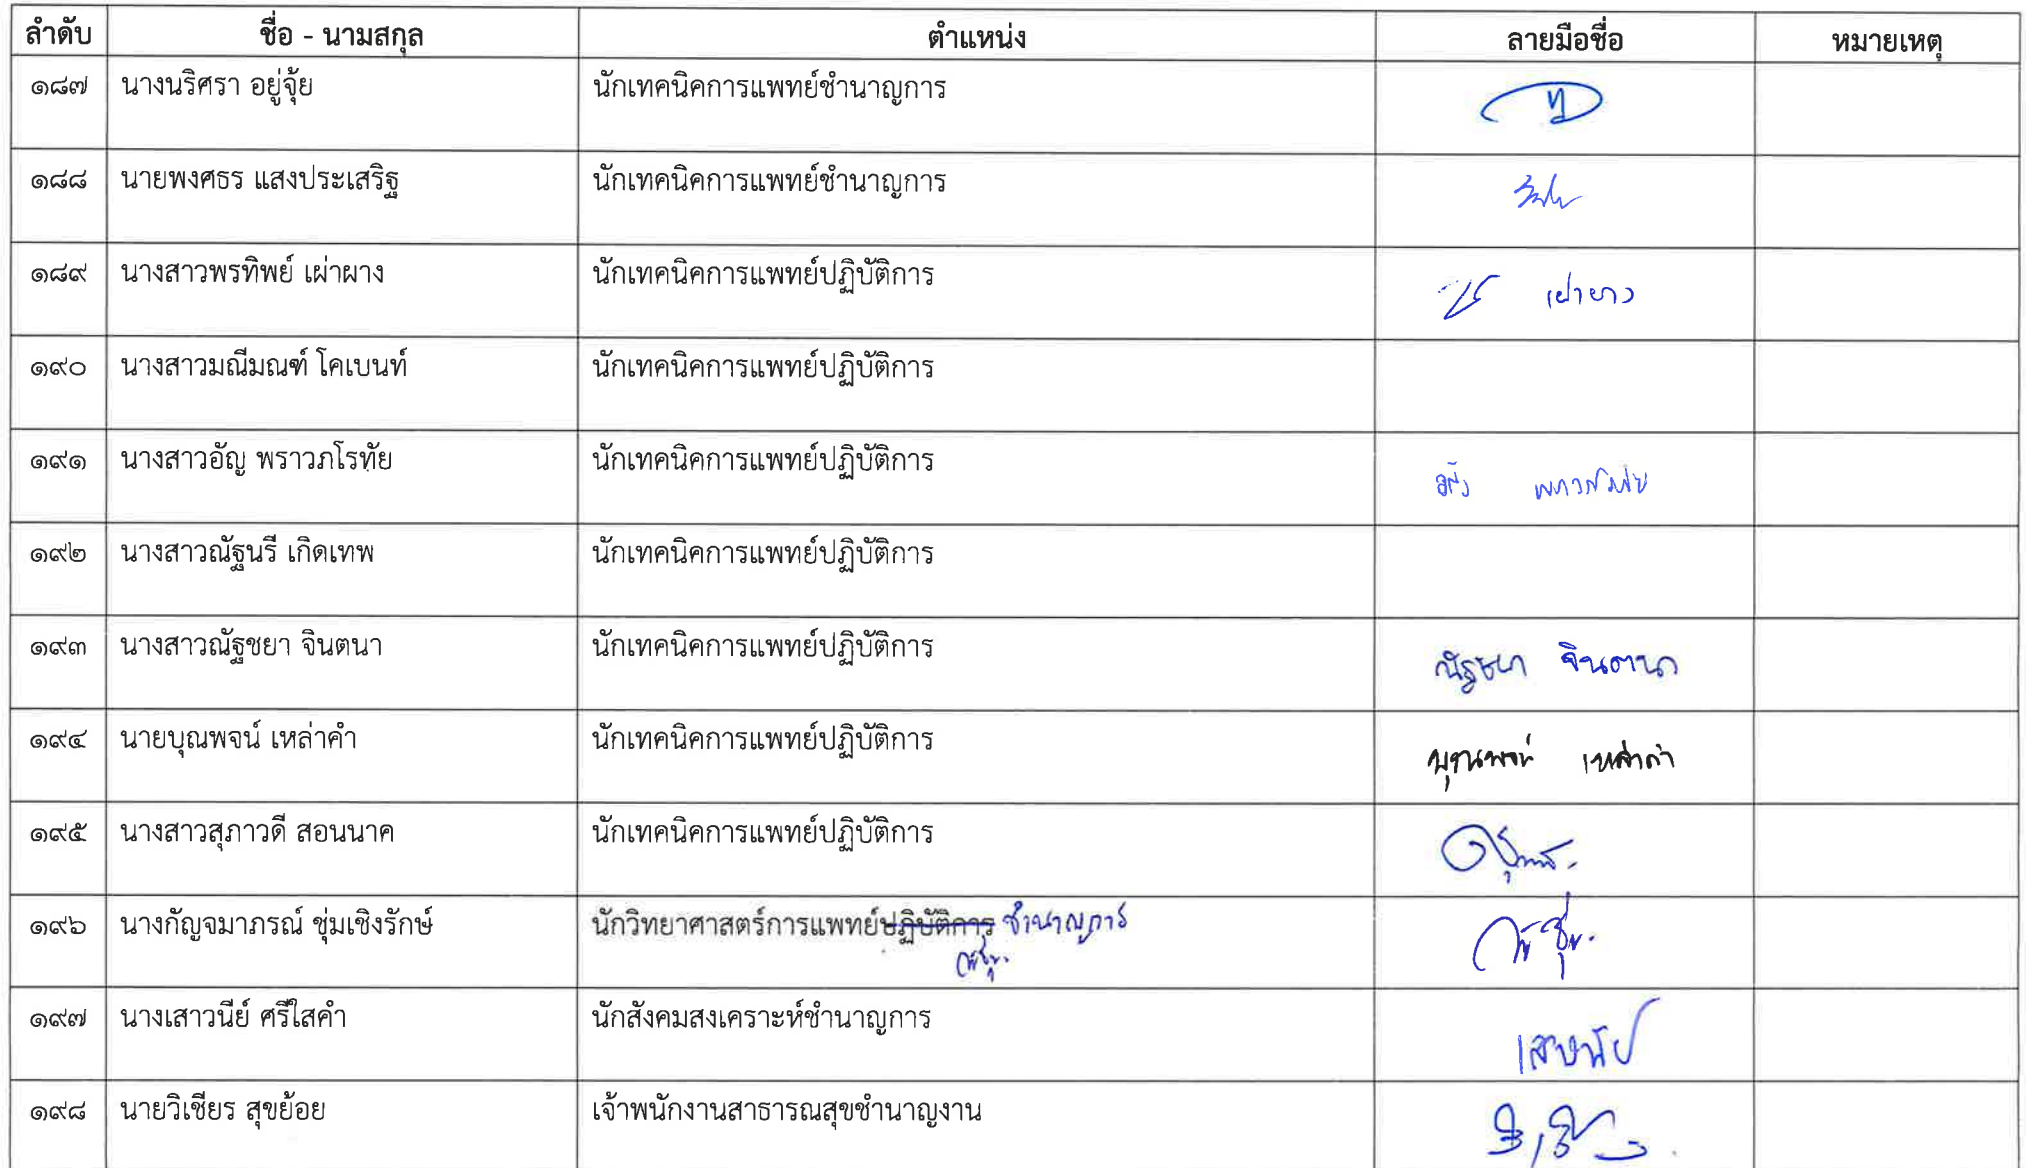 ลำดับ ชื่อ - นามสกุล ตำแหน่ง ลายมือชื่อ หมายเหตุ
๑๘๗ นางนริศรา อยู่จุ้ย นักเทคนิคการแพทย์ชำนาญการ
๑๘๘ นายพงศธร แสงประเสริฐ นักเทคนิคการแพทย์ชำนาญการ
๑๘๙ นางสาวพรทิพย์ เผ่าผาง นักเทคนิคการแพทย์ปฏิบัติการ
๑๙๐ นางสาวมณีมณฑ์ โคเบนท์ นักเทคนิคการแพทย์ปฏิบัติการ
๑๙๑ นางสาวอัญ พราวภโรทัย นักเทคนิคการแพทย์ปฏิบัติการ
๑๙๒ นางสาวณัฐนรี เกิดเทพ นักเทคนิคการแพทย์ปฏิบัติการ
๑๙๓ นางสาวณัฐชยา จินตนา นักเทคนิคการแพทย์ปฏิบัติการ ณัฐชยา จินตนา
๑๙๔ นายบุณพจน์ เหล่าคำ นักเทคนิคการแพทย์ปฏิบัติการ บุณพจน์ เหล่าคำ
๑๙๕ นางสาวสุภาวดี สอนนาค นักเทคนิคการแพทย์ปฏิบัติการ
๑๙๖ นางกัญจมาภรณ์ ชุ่มเชิงรักษ์ นักวิทยาศาสตร์การแพทย์ปฏิบัติการ ชำนาญการ
๑๙๗ นางเสาวนีย์ ศรีใสคำ นักสังคมสงเคราะห์ชำนาญการ เสาวนีย์
๑๙๘ นายวิเชียร สุขย้อย เจ้าพนักงานสาธารณสุขชำนาญงาน